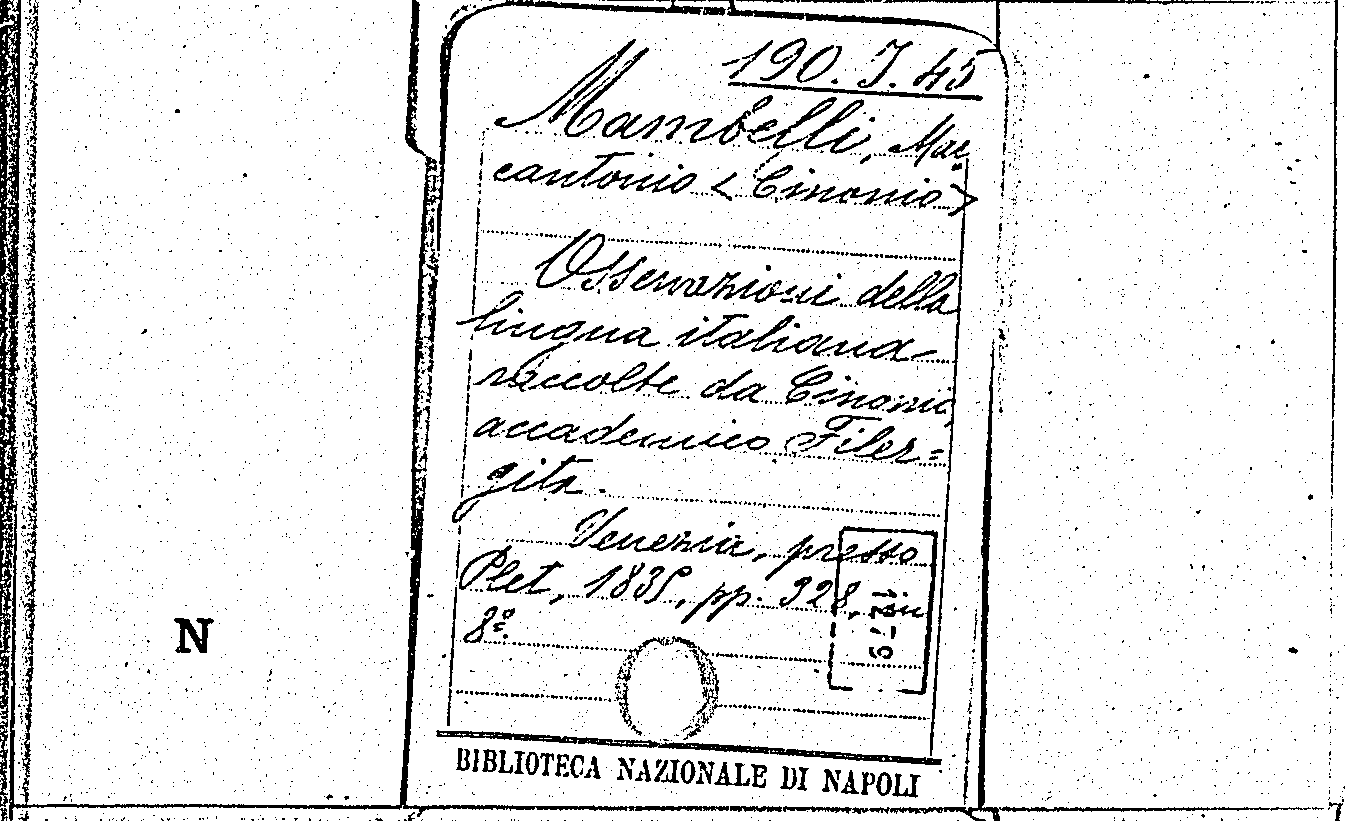 190. J. 45
Mambelli, Mar
cantonio < Cinonio >
Osservazioni della
lingua italiana
raccolte da Cinonio,
accademico Filer=
gita.
Venezia, presso
Plet, 1835, pp. 328, in
8º.
N
BIBLIOTECA NAZIONALE DI NAPOLI